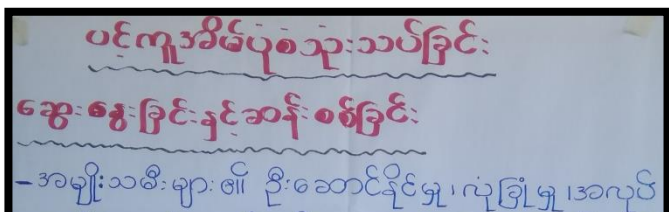 ပင့်ကူအိမ်ပုံစံသုံးသပ်ခြင်း
ဆွေးနွေးခြင်းနှင့်ဆန်းစစ်ခြင်း
-အမျိုးသမီးများ၏ ဦးဆောင်နိုင်မှု၊လုံခြုံမှု၊အလုပ်